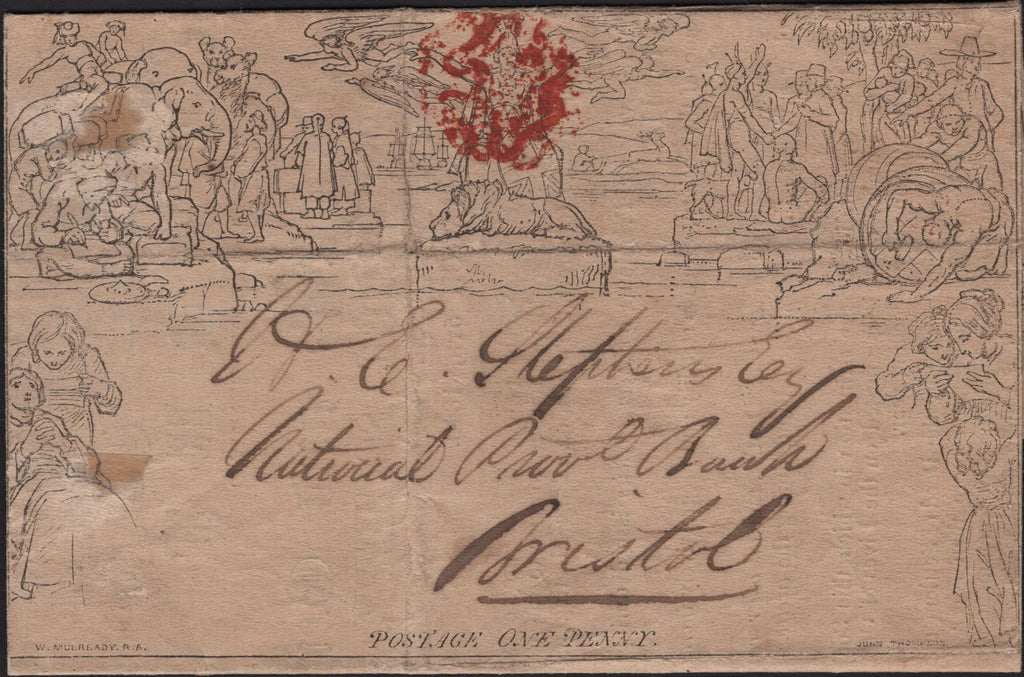 H. E. Stephens Esq
National Provl Bank
Bristol
POSTAGE ONE PENNY.
W. MULREADY. R. A.
JOHN THOMPSON